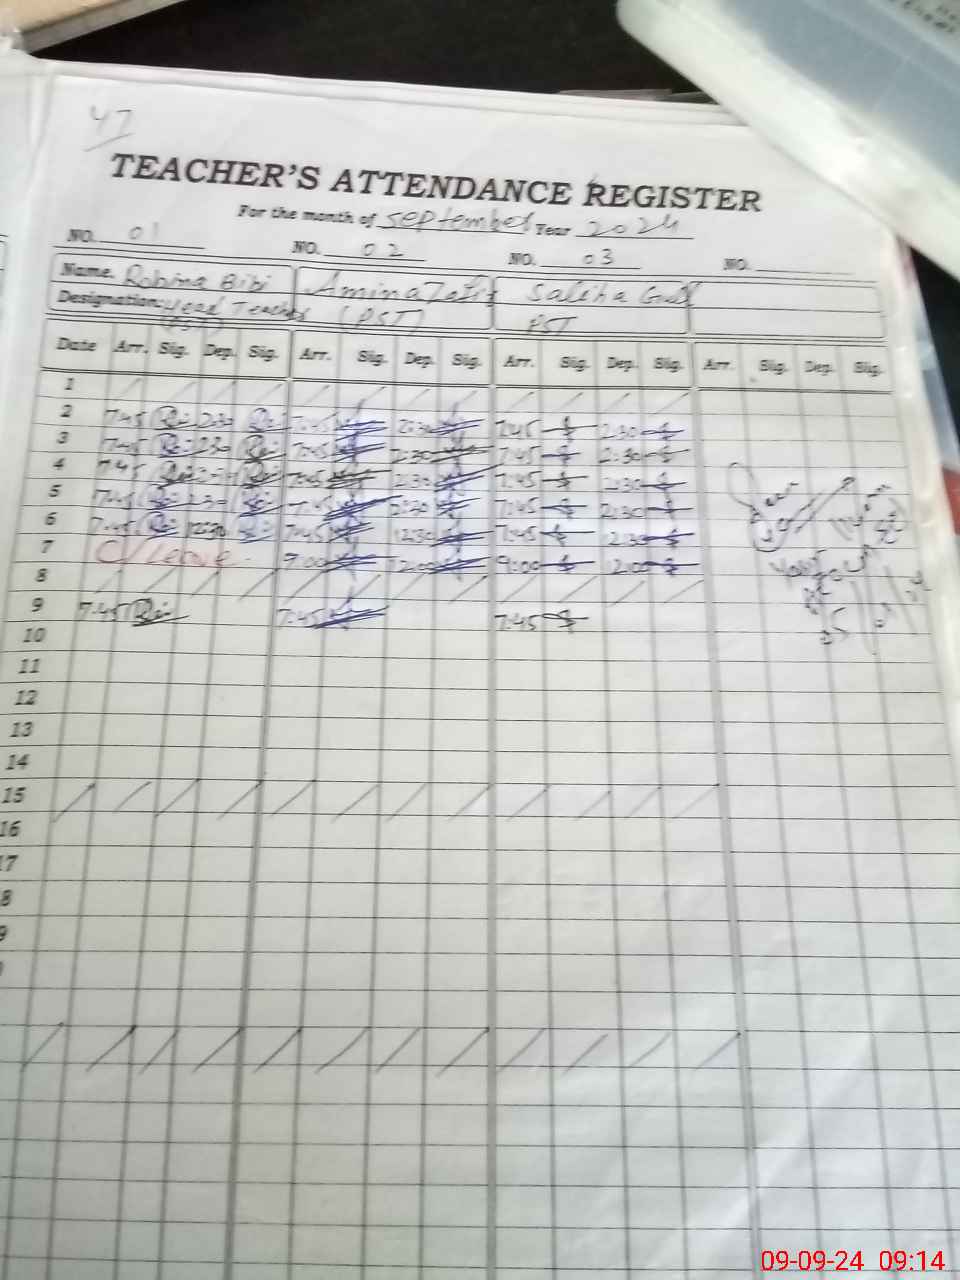 47
TEACHER'S ATTENDANCE REGISTER
For the month of September Year 2024
NO. 01 NO. 02 NO. 03 NO.
Name. Robina Bibi Amina Saleha Gul
Designation: Head Teacher (PST) (PST) PST
Date Arr. Sig. Dep. Sig. Arr. Sig. Dep. Sig. Arr. Sig. Dep. Sig. Arr. Sig. Dep. Sig.
1
2 7:45 2:30 7:45 2:30 7:45 2:30
3 7:45 2:30 7:45 2:30 7:45 2:30
4 7:45 7:45 2:30 7:45 2:30
5 7:45 2:30 7:45 2:30 7:45 2:30
6 7:45 12:30 7:45 12:30 7:45 12:30
7 C/Leave 9:00 12:00 9:00 2:00
8
9 7:45 7:45 7:45
10
11
12
13
14
15
16
17
8
9
09-09-24 09:14